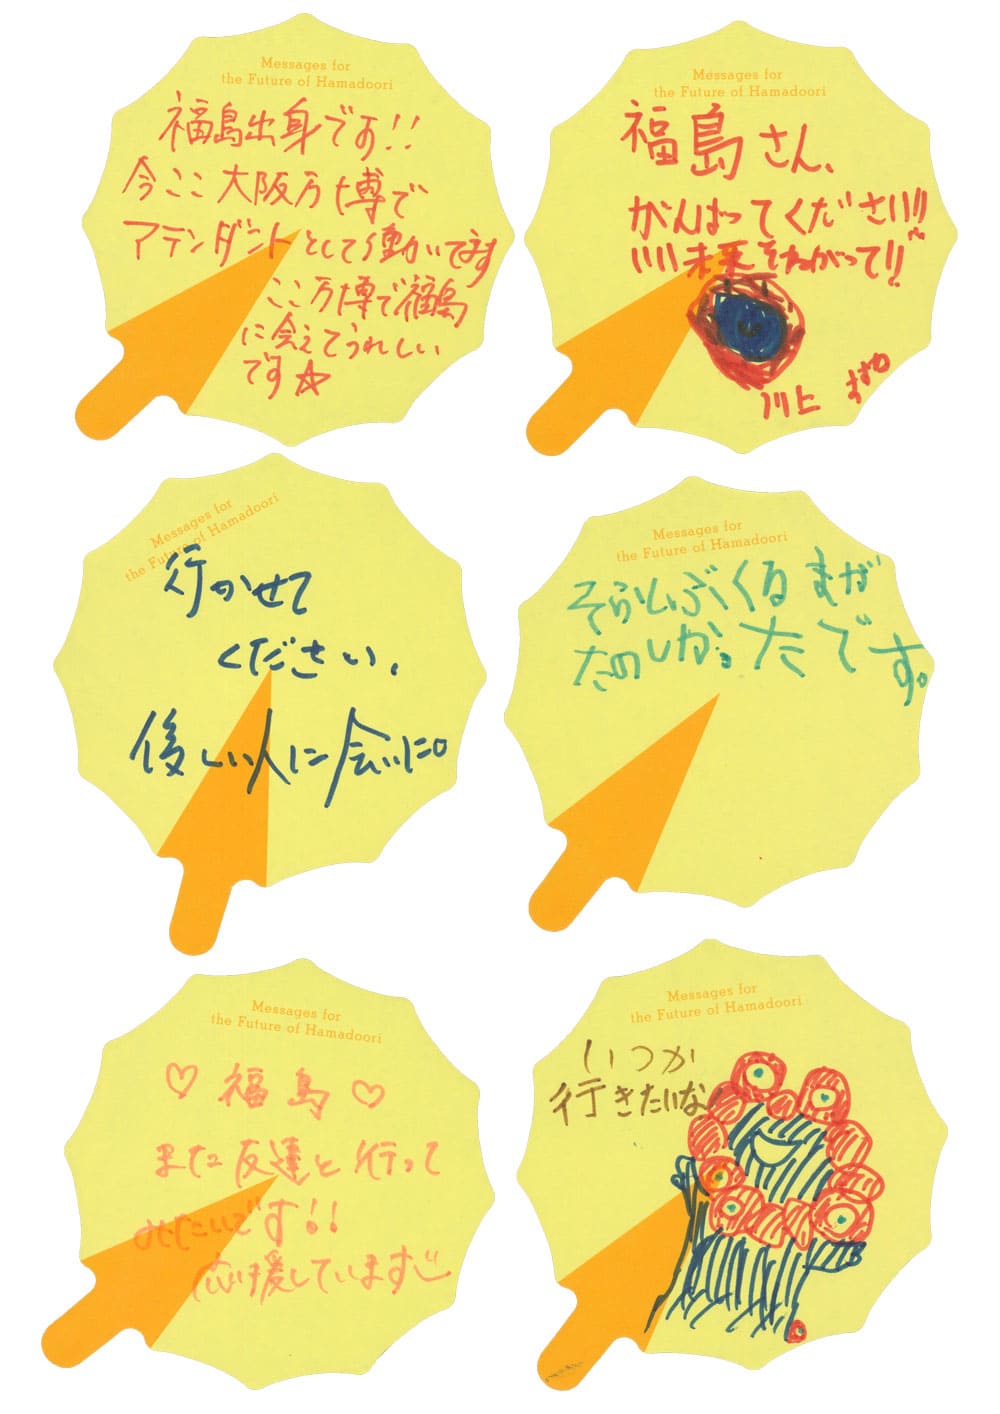 Messages for
the Future of Hamadoori
福島出身です!!
今ここ大阪万博で
アテンダントとして働いてます
ここ万博で福島
に会えてうれしい
です☆
Messages for
the Future of Hamadoori
福島さん、
がんばってください!!
未来そわがって!!
川上
Messages for
the Future of Hamadoori
行かせて
ください。
優しい人に会いに。
Messages for
the Future of Hamadoori
そらとぶくるまが
たのしかったです。
Messages for
the Future of Hamadoori
♡福島♡
また友達と行って
みたいです!!
応援しています
Messages for
the Future of Hamadoori
いつか
行きたいな